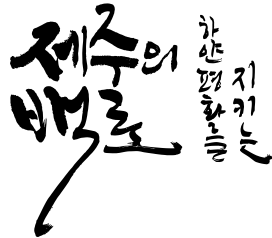 제주의
백로
하얀 평화를
지키는